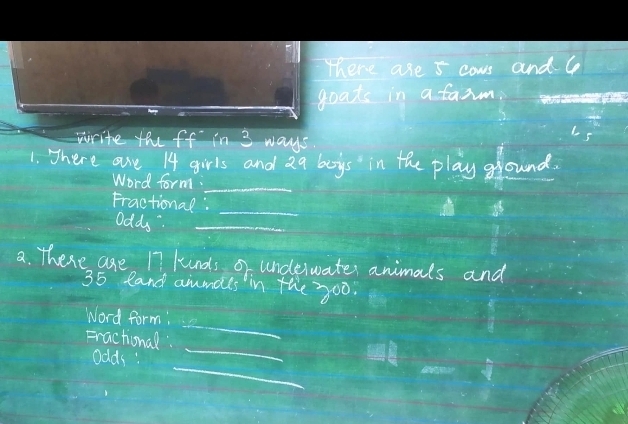 There are 5 cows and 6
goats in a farm.
write the ff in 3 ways.
1. There are 14 girls and 29 boys in the play ground.
Word form:
Fractional:
Odds:
2. There are 17 kinds of underwater animals and
35 land animals in the zoo.
Word form:
Fractional:
Odds: